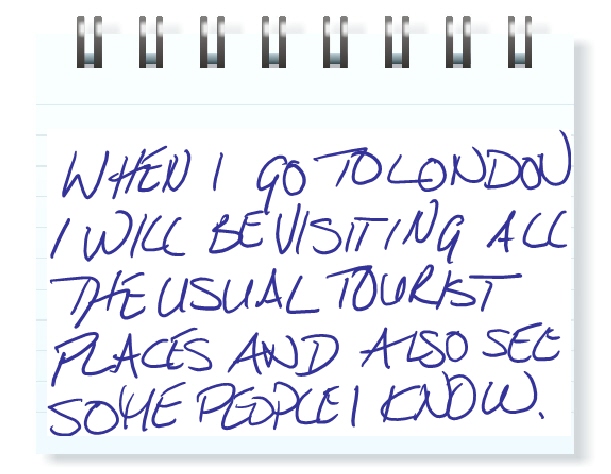 WHEN I GO TO LONDON
I WILL BE VISITING ALL
THE USUAL TOURIST
PLACES AND ALSO SEE
SOME PEOPLE I KNOW.